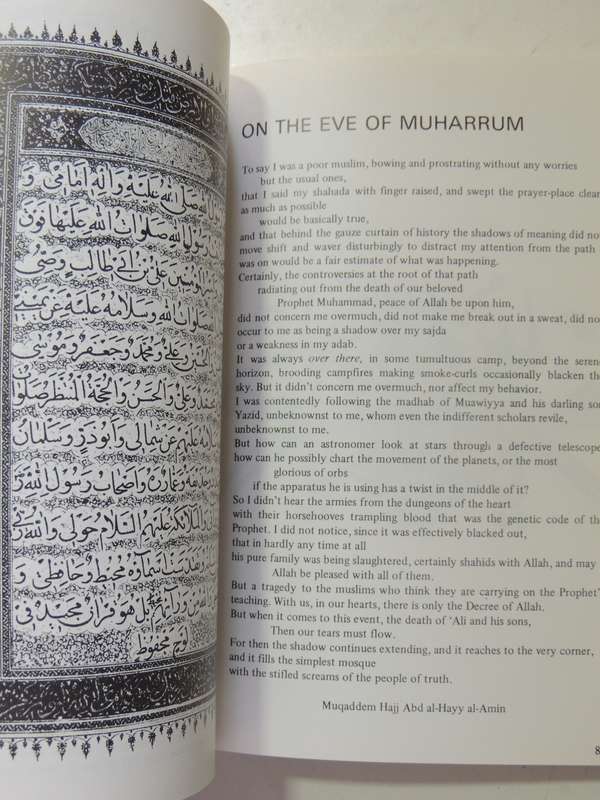 الله صلى الله عليه وآله أمامي و
رسول الله صلوات الله عليها فوق
المؤمنين علي بن أبي طالب وصي
صلوات الله وسلامه عليه عن يميني
الحسين وعلي ومحمد وجعفر وموسى
محمد وعلي والحسن والحجة المنتظر صلوات
عليهم عن شمالي وأبوذر وسلمان
وعمار وأصحاب رسول الله
والملائكة عليهم السلام حولي والله ربي
محيط وحافظي و
الله من ورائهم محيط بل هو قرآن مجيد في
لوح محفوظ
ON THE EVE OF MUHARRUM
To say I was a poor muslim, bowing and prostrating without any worries
but the usual ones,
that I said my shahada with finger raised, and swept the prayer-place clean
as much as possible
would be basically true,
and that behind the gauze curtain of history the shadows of meaning did no
move shift and waver disturbingly to distract my attention from the path
was on would be a fair estimate of what was happening.
Certainly, the controversies at the root of that path
radiating out from the death of our beloved
Prophet Muhammad, peace of Allah be upon him,
did not concern me overmuch, did not make me break out in a sweat, did no
occur to me as being a shadow over my sajda
or a weakness in my adab.
It was always over there, in some tumultuous camp, beyond the seren
horizon, brooding campfires making smoke-curls occasionally blacken the
sky. But it didn't concern me overmuch, nor affect my behavior.
I was contentedly following the madhab of Muawiyya and his darling son
Yazid, unbeknownst to me, whom even the indifferent scholars revile,
unbeknownst to me.
But how can an astronomer look at stars through a defective telescope
how can he possibly chart the movement of the planets, or the most
glorious of orbs
if the apparatus he is using has a twist in the middle of it?
So I didn't hear the armies from the dungeons of the heart
with their horsehooves trampling blood that was the genetic code of the
Prophet. I did not notice, since it was effectively blacked out,
that in hardly any time at all
his pure family was being slaughtered, certainly shahids with Allah, and may
Allah be pleased with all of them.
But a tragedy to the muslims who think they are carrying on the Prophet'
teaching. With us, in our hearts, there is only the Decree of Allah.
But when it comes to this event, the death of 'Ali and his sons,
Then our tears must flow.
For then the shadow continues extending, and it reaches to the very corner,
and it fills the simplest mosque
with the stifled screams of the people of truth.
Muqaddem Hajj Abd al-Hayy al-Amin
8